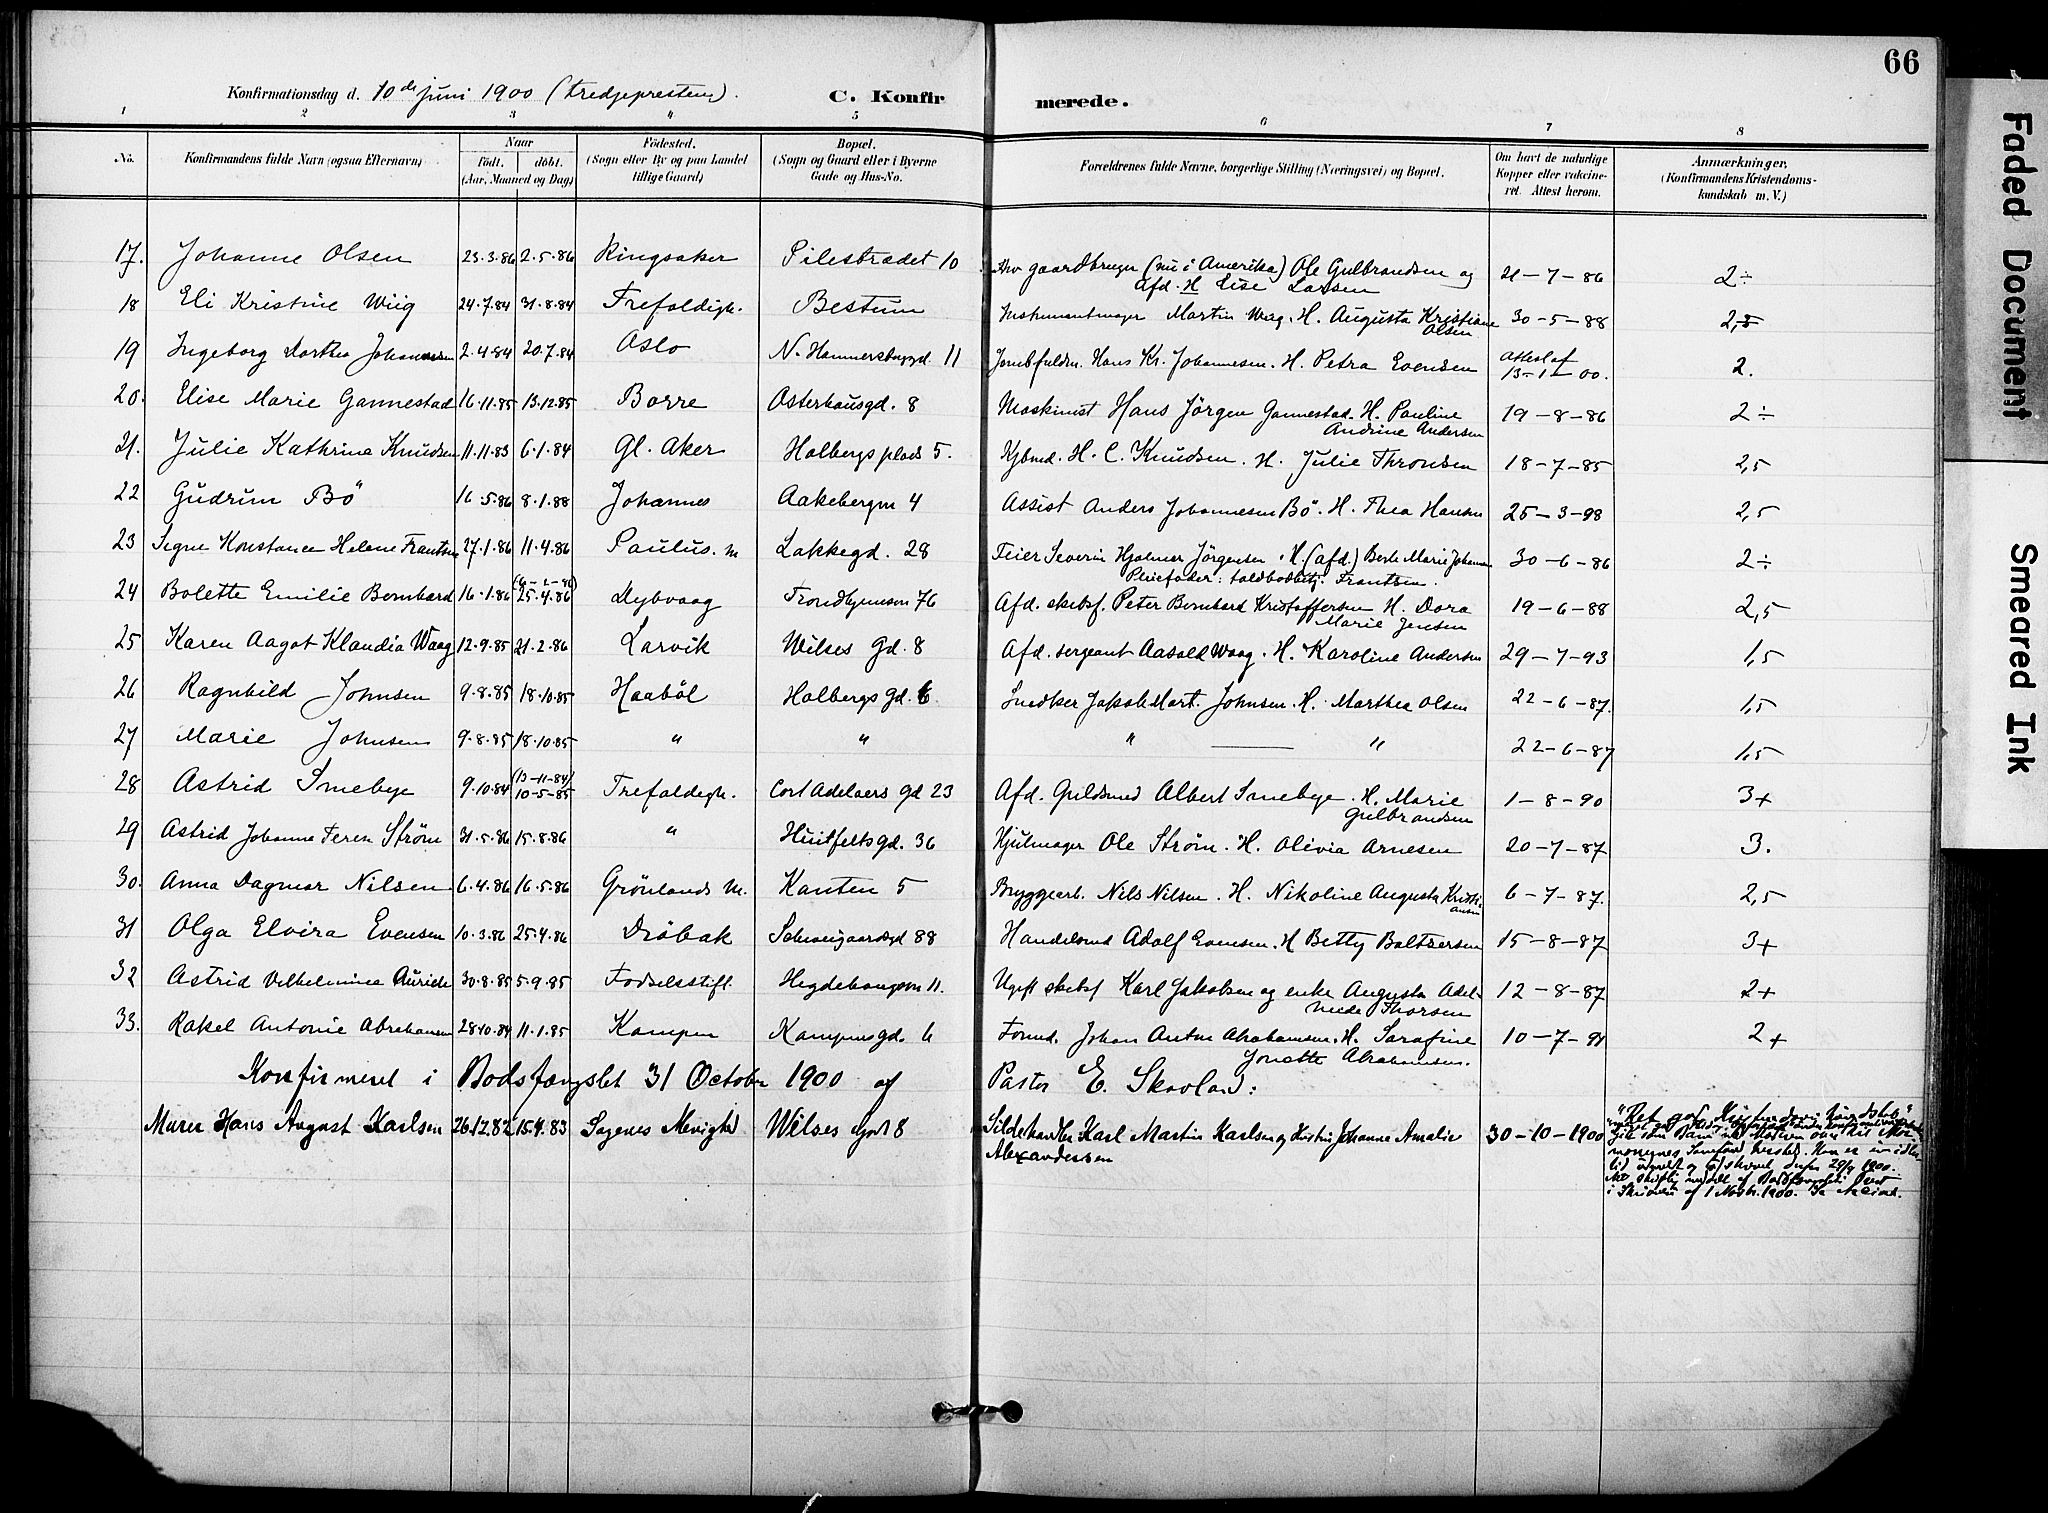 66
Konfirmationsdag d. 10de juni 1900 (tredjepresten). C. Konfirmerede.
1 2 3 4 5 6 7 8
No. Konfirmandens fulde Navn (ogsaa Efternavn) Naar født. døbt. (Aar, Maaned og Dag) Fødested. (Sogn eller By og paa Landet tillige Gaard) Bopæl. (Sogn og Gaard eller i Byerne Gade og Hus-No. Forældrenes fulde Navne, borgerlige Stilling (Næringsvei) og Bopæl. Om havt de naturlige Kopper eller vakcineret. Attest herom. Anmærkninger. (Konfirmandens Kristendomskundskab m. V.)
17. Johanne Olsen 23.3.86 2.5.86 Ringsaker Pilestrædet 10 gaardbruger (nu i Amerika) Ole Gulbrandsen og afd. H Lise Larsen 21-7-86 2÷
18 Eli Kristine Wiig 24.7.84 31.8.84 Trefoldigh. Bestum Instrumentmager Martin Wiig. H. Augusta Kristiane Olsen 30-5-88 2,5
19 Ingeborg Dorthea Johannesen 2.4.84 20.7.84 Oslo N. Hammersborggd. 11 Hans Kr. Johannesen. H. Petra Evensen Attest af 13-1-00. 2.
20. Elise Marie Gannestad 16.11.85 13.12.85 Borre Osterhausgd. 8 Maskinist Hans Jörgen Gannestad. H. Pauline Andrine Andersen 19-8-86 2÷
21. Julie Kathrine Knudsen 11.11.83 6.1.84 Gl. Aker Holbergs plads 5. Kjbmd. H. C. Knudsen. H. Julie Thronsen 18-7-85 2,5
22 Gudrun Bö 16.5.86 8.1.88 Johannes Aakebergvn 4 Assist Anders Johannesen Bö. H. Thea Hansen 25-3-98 2,5
23 Signe Konstance Helene Frantsen 27.1.86 11.4.86 Paulus. m Lakkegd. 28 Feier Severin Hjalmar Jörgensen. H. (afd.) Berte Marie Johansen Pleiefader: toldbodbetj. Frantsen. 30-6-86 2÷
24 Bolette Emilie Bernhard 16.1.86 (6-2-86) 25.4.86 Dybvaag Trondhjemsvn 76 Afd. skibsf. Peter Bernhard Kristoffersen H. Dora Marie Jensen 19-6-88 2,5
25 Karen Aagot Klaudia Waag 12.9.85 21.2.86 Larvik Wilses Gd. 8 Afd. sergeant Aasold Waag. H. Karoline Andersen 29-7-93 1,5
26 Ragnhild Johnsen 9.8.85 18.10.85 Haaböl Holbergs gd. 6 Snedker Jakob Mart. Johnsen. H. Marthea Olsen 22-6-87. 1,5
27 Marie Johnsen 9.8.85 18.10.85 " " " — " 22-6-87 1,5
28 Astrid Smebye 9.10.84 (13-11-84) 10-5-85 Trefoldigh. Cort Adelaers gd 23 Afd. Guldsmed Albert Smebye. H. Marie Gulbrandsen 1-8-90 3+
29 Astrid Johanne Strøm 31.5.86 15.8.86 " Huitfeltsgd. 36 Hjulmager Ole Strøm. H. Olivia Arnesen 20-7-87 3.
30. Anna Dagmar Nilsen 6.4.86 16.5.86 Grönlands M. Kanten 5 Bryggearb. Nils Nilsen. H. Nikoline Augusta Kristiansen 6-7-87. 2,5
31 Olga Elvira Evensen 10.3.86 25.4.86 Dröbak Schweigaardsgd 88 Handelsmd Adolf Evensen. H Betty Baltzersen 15-8-87 3+
32 Astrid Vilhelmine 30.8.85 5.9.85 Fødselsstift. Hegdehaugsvn 11. Ugift skibsf Karl Jakobsen og enke Augusta Adelheide Thorsen 12-8-87 2+
33. Rakel Antonie Abrahamsen 28.10.84 11.1.85 Kampen Kampensgd. 6 Formd. Johan Anton Abrahamsen. H. Sarafine Jonette Abrahamsen. 10-7-91 2+
Konfirmeret i Bodsfængslet 31 October 1900 af Pastor E. Skovland:
Murer Hans August Karlsen 26.12.82 15.4.83 Sagenes Menighed Wilses Gd 8 Sildehandler Karl Martin Karlsen og Hustru Johanne Amalie Alexandersen 30-10-1900
i af 1 Novbr. 1900.
Faded Document
Smeared Ink